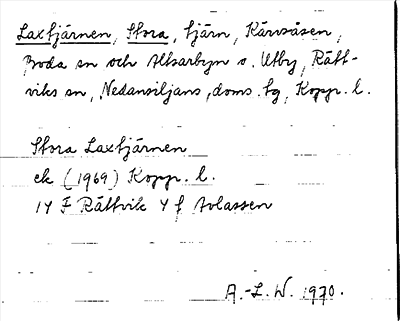 Laxtjärnen, Stora, tjärn, Kärvsåsen,
Boda sn och Altsarbyn o. Utby, Rätt-
viks sn, Nedansiljans doms. tg, Kopp. l.
Stora Laxtjärnen
ek (1969) Kopp. l.
14 F Rättvik 4 f Avlassen
A.-L. W. 1970.